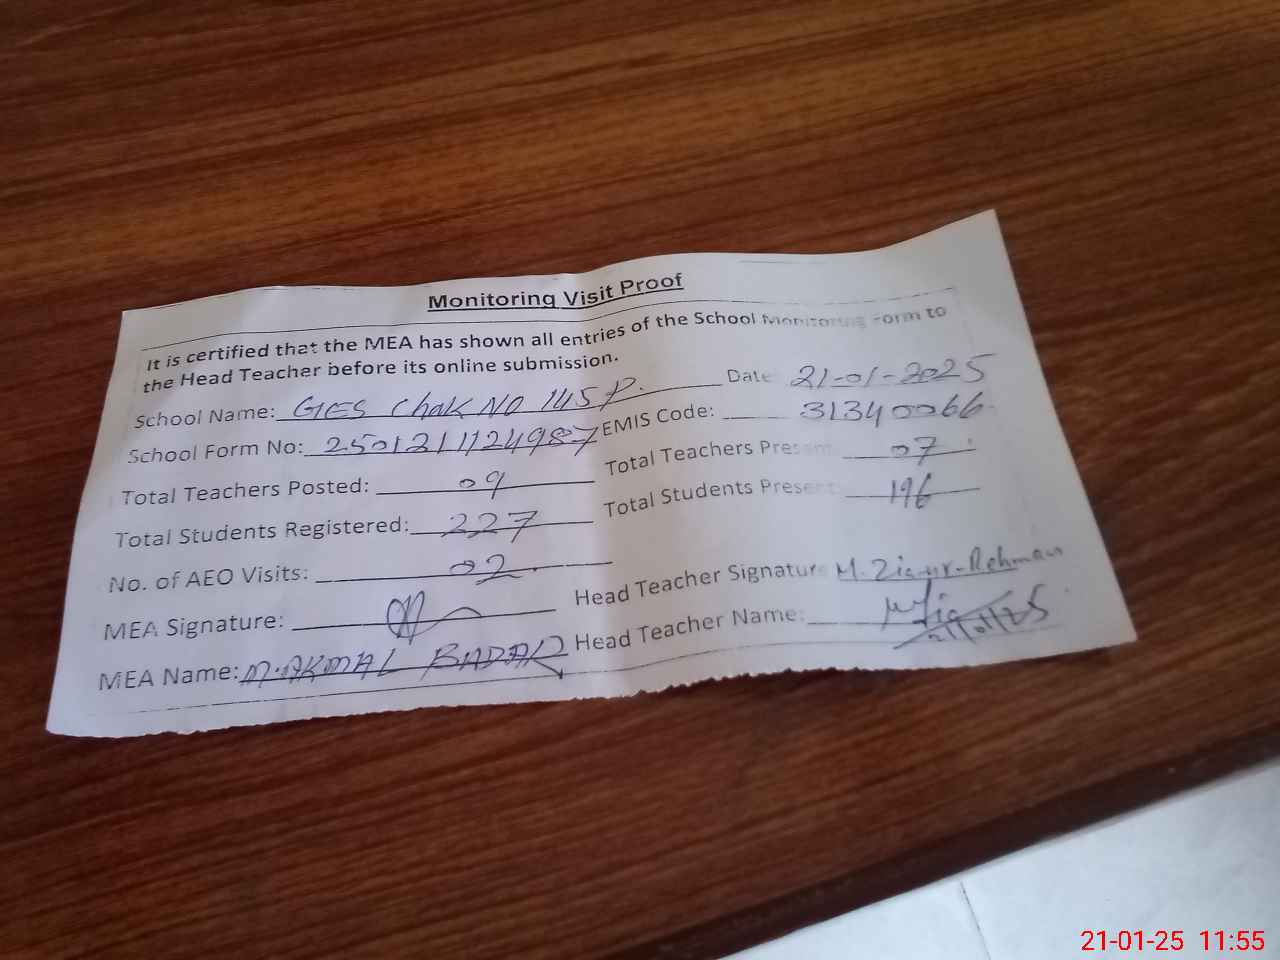 Monitoring Visit Proof
It is certified that the MEA has shown all entries of the School Monitoring Form to
the Head Teacher before its online submission.
School Name: GES Chak NO 145P. Date 21-01-2025
School Form No: 2501211124987 EMIS Code: 31340066
Total Teachers Posted: 09 Total Teachers Present 07
Total Students Registered: 227 Total Students Present 196
No. of AEO Visits: 02
MEA Signature: Head Teacher Signature M. Zia-ur-Rehman
MEA Name: M. AKMAL BADAR Head Teacher Name: 21/01/25
21-01-25 11:55